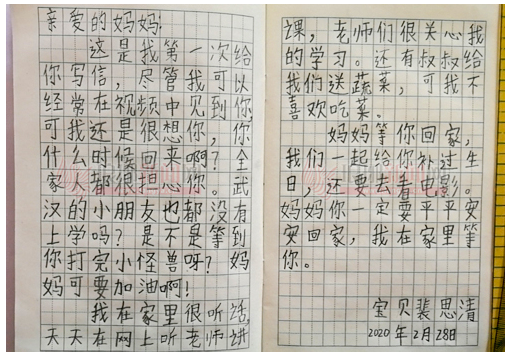 亲爱的妈妈:
这是我第一次给
你写信，尽管我可以
经常在视频中见到你，
可我还是很想你，你
什么时候回来啊？全
家人都很担心你。武
汉的小朋友也都没有
上学吗？是不是等到
你打完小怪兽呀？妈
妈可要加油啊！
我在家里很听话，
天天在网上听老师讲
课，老师们很关心我
的学习。还有叔叔给
我们送蔬菜，可我不
喜欢吃菜。
妈妈等你回家，
我们一起给你补过生
日，还要去看电影。
妈妈你一定要平平安
安回家，我在家里等
你。
宝贝裴思清
2020年2月28日